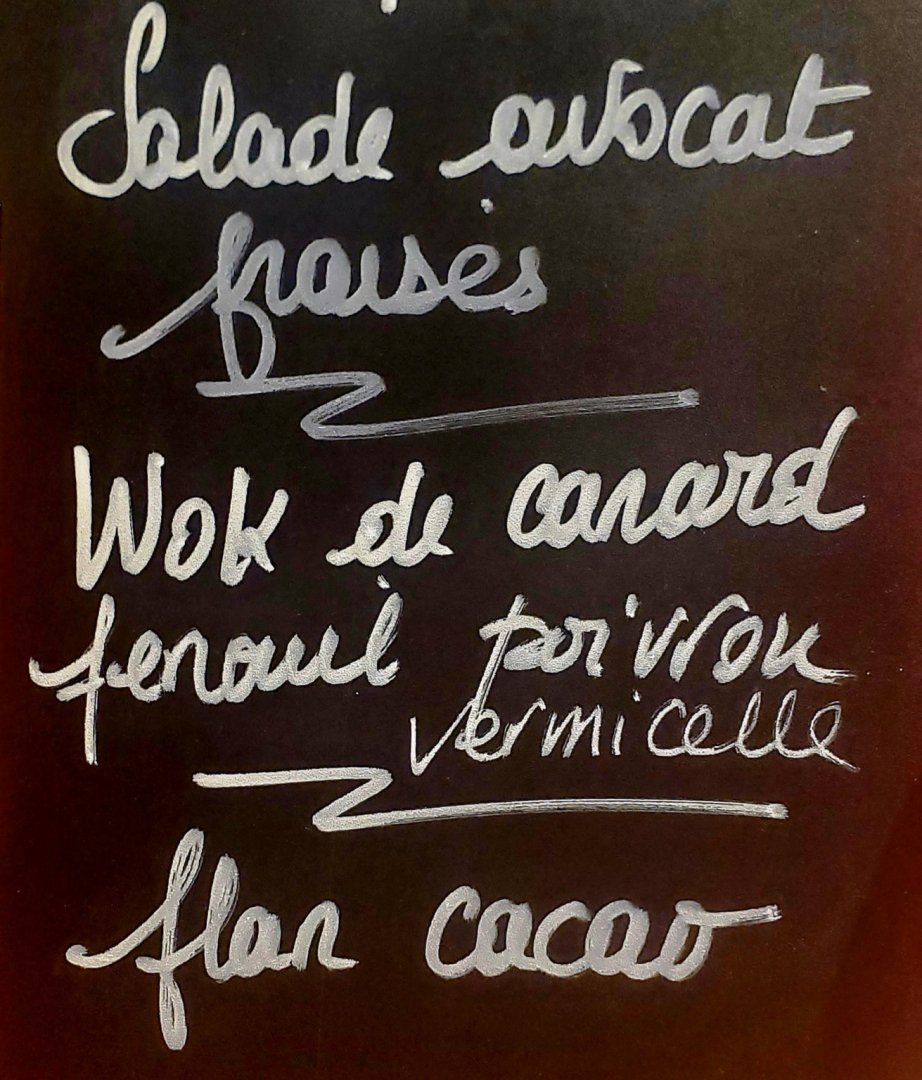 Salade avocat
fraises
Wok de canard
fenouil poivron
vermicelle
flan cacao